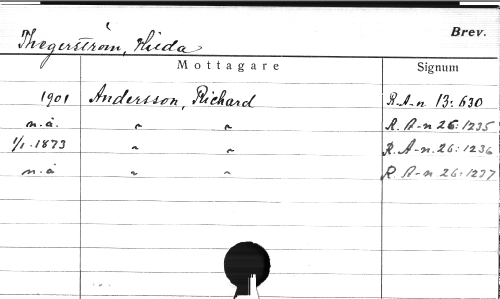 Brev.
Thegerström, Hilda
Mottagare Signum
1901 Andersson, Richard R.A-n 13:630
n.å. " " R.A-n 26:1235
1/1.1873 " " R.A-n.26:1236
n.å " " R.A-n 26:1237